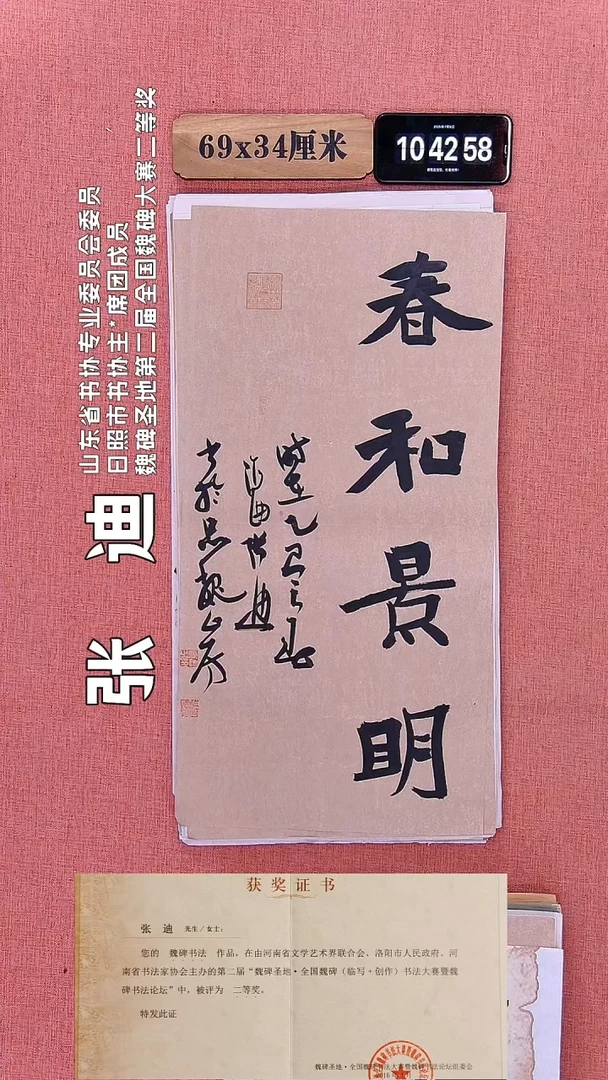 69x34厘米
10 42 58
山东省书协专业委员会委员
日照市书协主*席团成员
魏碑圣地第二届全国魏碑大赛二等奖
张 迪
春和景明
时在乙巳之春
张迪
获奖证书
张 迪 先生/女士:
您的 魏碑书法 作品,在由河南省文学艺术界联合会、洛阳市人民政府、河
南省书法家协会主办的第二届“魏碑圣地·全国魏碑(临写+创作)书法大赛暨魏
碑书法论坛”中,被评为 二等奖。
特发此证
魏碑圣地·全国魏碑书法大赛暨魏碑书法论坛组委会